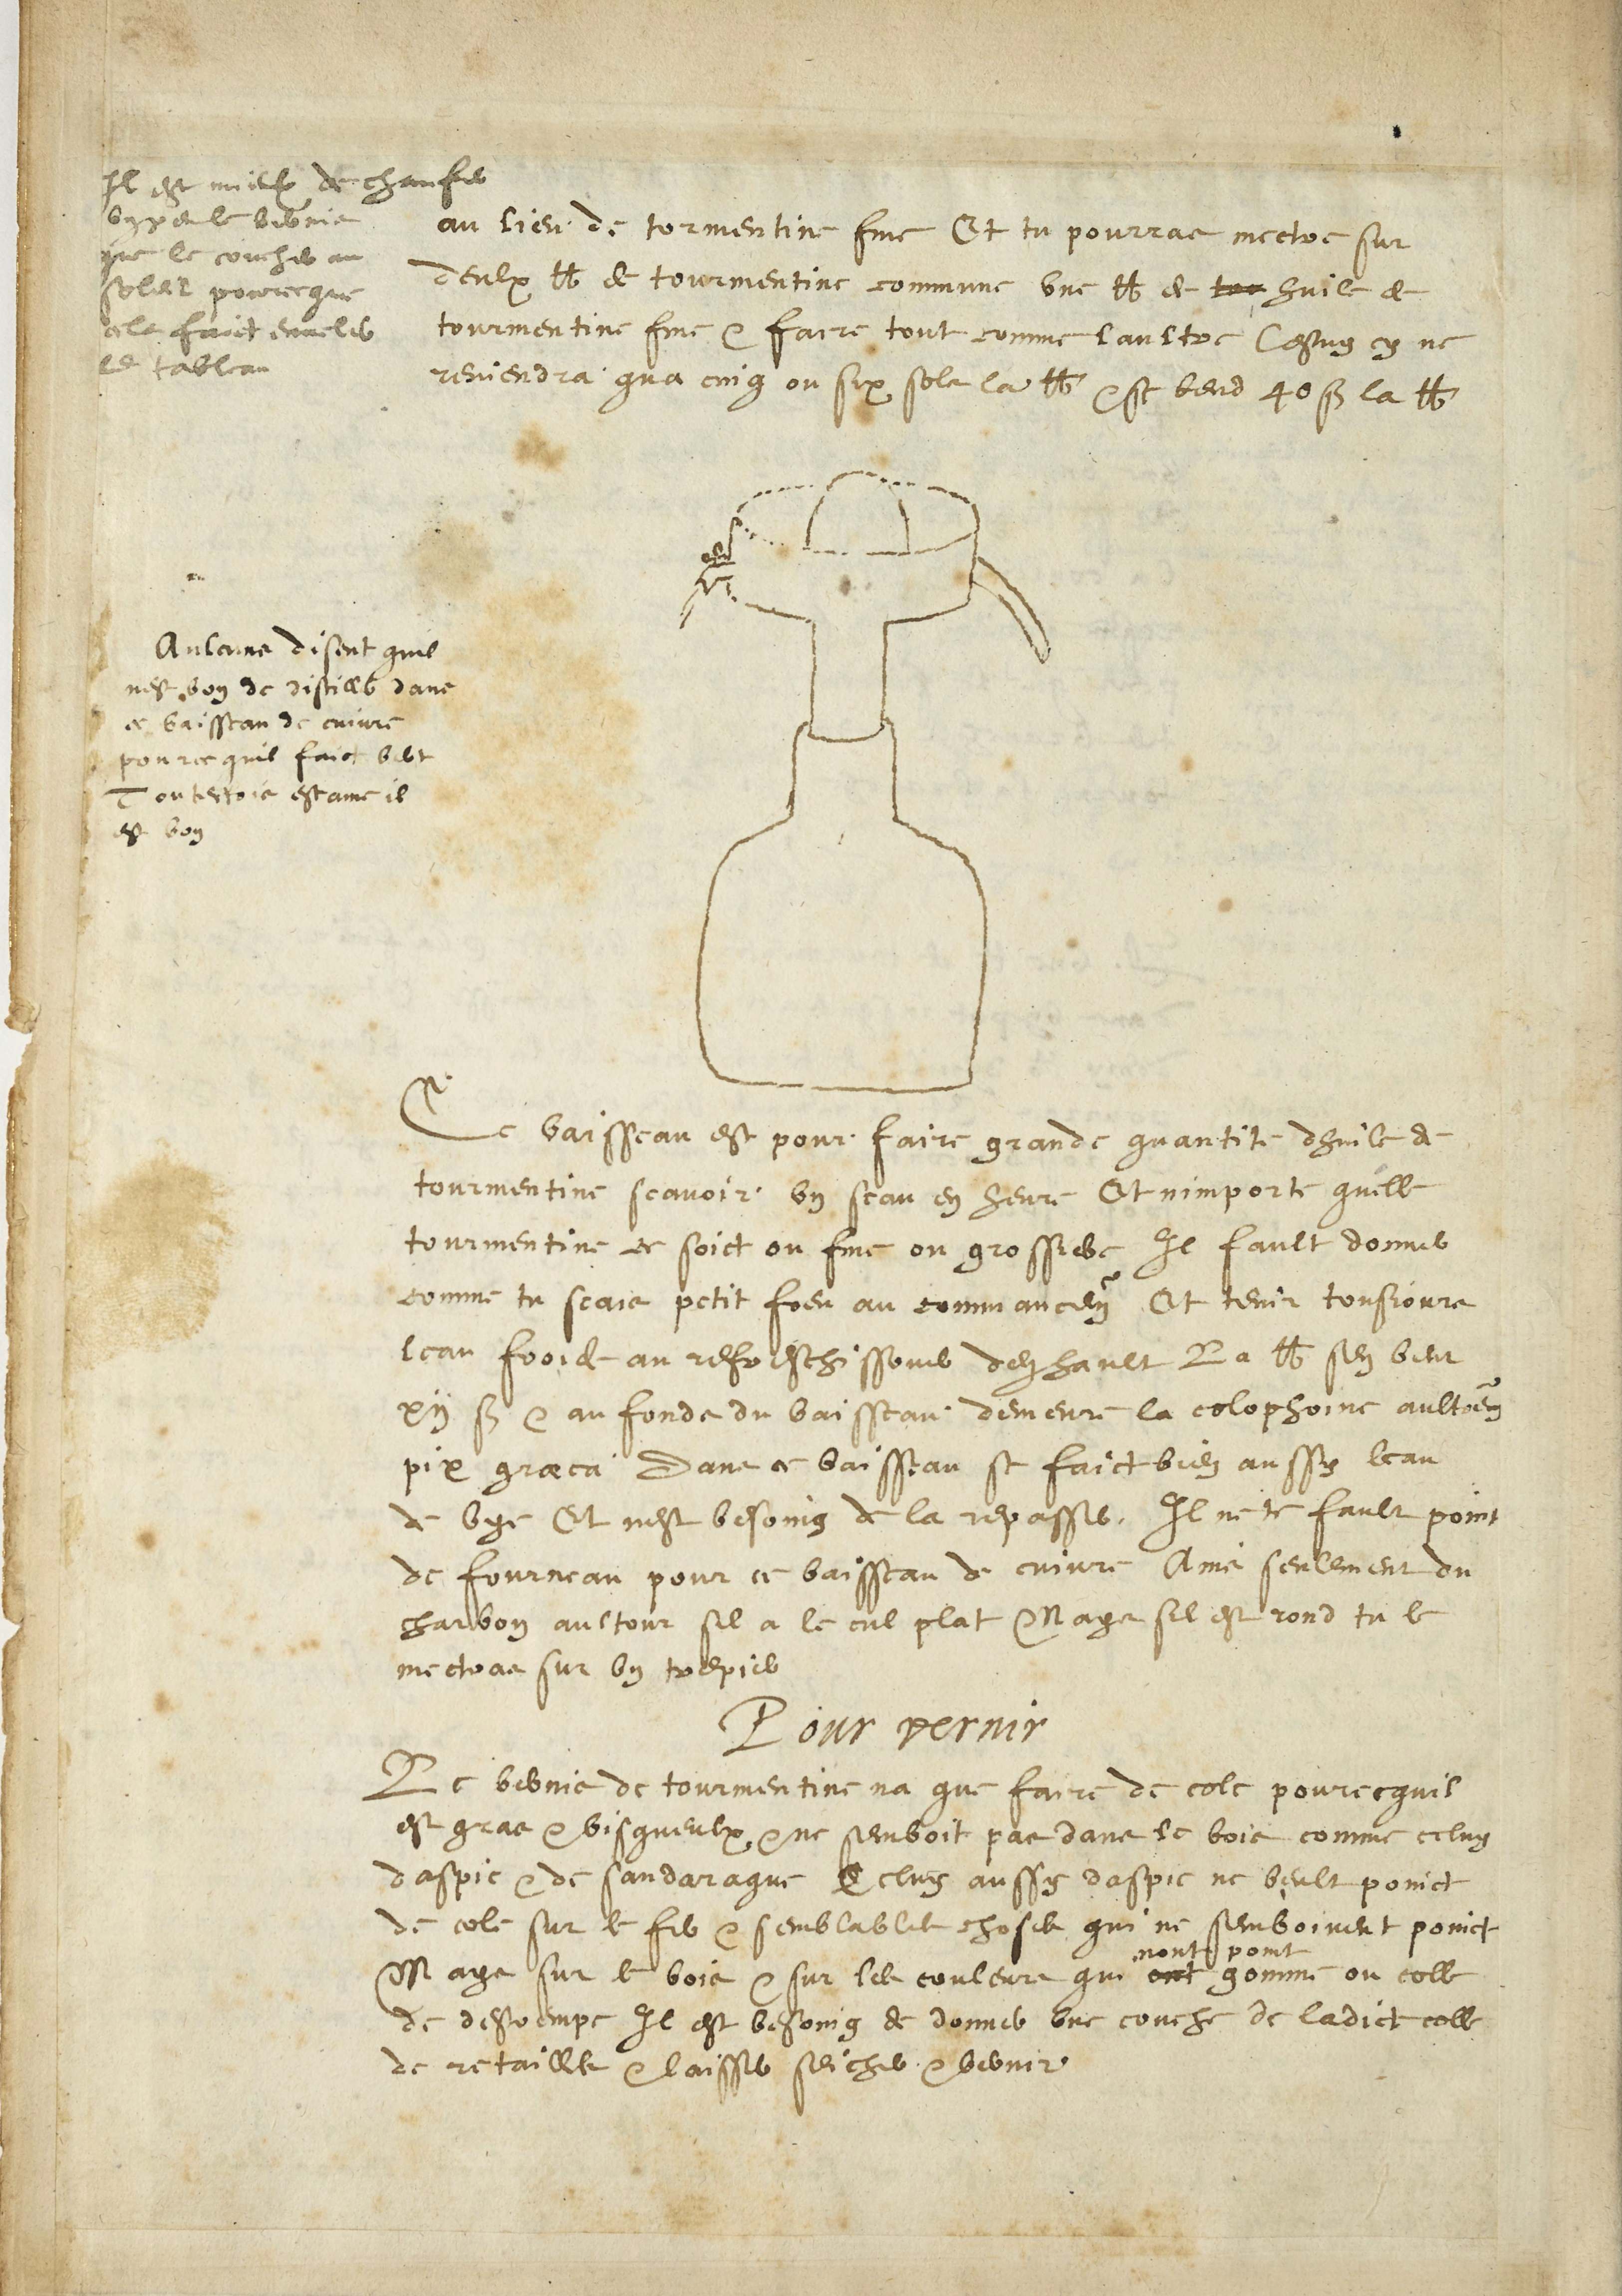 Il est mieulx de chaufer
un peu le vernis
que le coucher au
soleil pourceque
cela faict enveler
le tableau
au lieu de tormentine fine Et tu pourras mectre sur
deulx ℔ de tourmentine commune une ℔ de huile de
tourmentine fine & faire tout comme laultre Cestuy cy ne
reviendra qua cinq ou six sols la ℔ & se vend 40 s la ℔
Aulcuns disent quil
nest bon de distiller dans
ce vaisseau de cuivre
pource quil faict vert
Toutesfois estame il
est bon
Ce vaisseau est pour faire grande quantite dhuile de
tourmentine scavoir un seau en heure Et nimporte quelle
tourmentine ce soict ou fine ou grossiere Il fault donner
comme tu scais petit foeu au commancem Et tenir tousjours
leau froide au refreschissoir denhault La ℔ sen vent
xii s & au fonds du vaisseau demeure la colophoine aultrem
pix græca Dans ce vaisseau se faict bien aussy leau
de vye Et nest besoing de la repasser. Il ne te fault point
de fourneau pour ce vaisseau de cuivre Ains seulement du
charbon aultour sil a le cul plat Mays sil est rond tu le
mectras sur un trepied
Pour vernir
Le vernis de tourmentine na que faire de cole pourcequil
est gras & visqueulx & ne semboit pas dans le bois comme celuy
daspic & de sandaraque Celuy aussy daspic ne veult poinct
de cole sur le fer & semblables choses qui ne semboivent poinct
Mays sur le bois & sur les couleurs qui ont nont point gomme ou colle
de destrempe Il est besoing de donner une couche de ladict colle
de retailles & laisser seicher & vernir